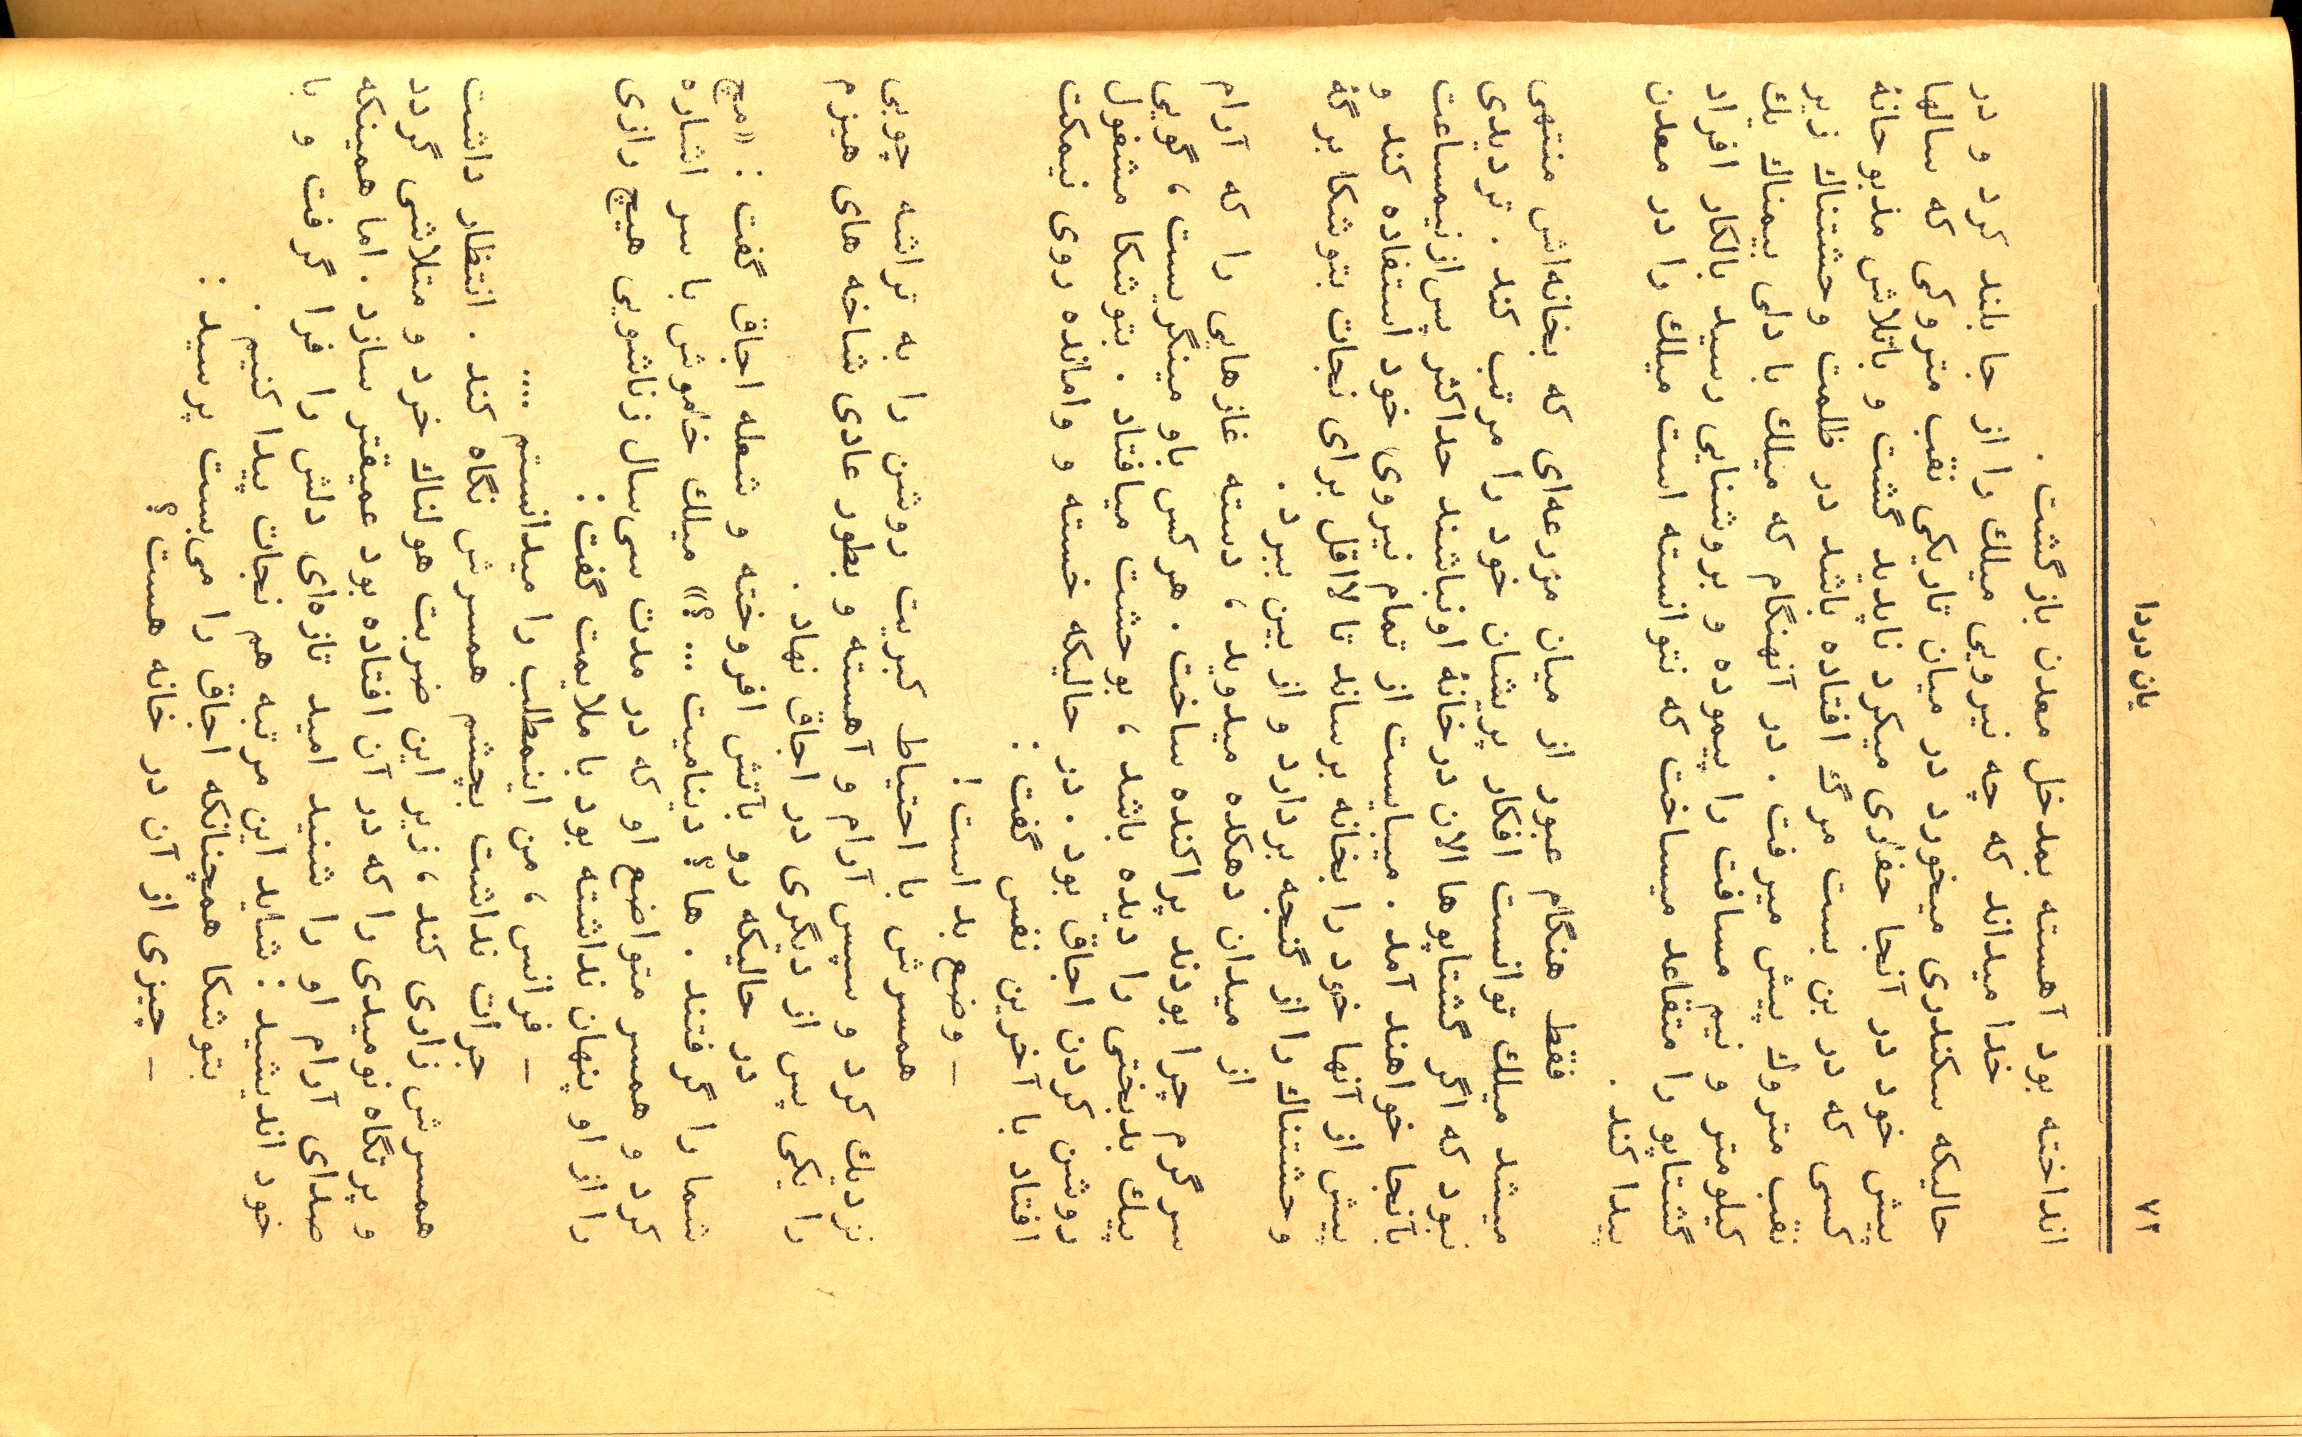 ۷۲
یان دردا
انداخته بود آهسته بمدخل معدن بازگشت .
خدا میداند که چه نیرویی میلك را از جا بلند کرد و در
حالیکه سکندری میخورد در میان تاریکی نقب متروکی که سالها
پیش خود در آنجا حفاری میکرد ناپدید گشت و باتلاش مذبوحانهٔ
کسی که در بن بست مرگ افتاده باشد در ظلمت وحشتناك زیر
نقب متروك پیش میرفت . در آنهنگام که میلك با دلی بیمناك یك
کیلومتر و نیم مسافت را پیموده و بروشنایی رسید بالکار افراد
گشتاپو را متقاعد میساخت که نتوانسته است میلك را در معدن
پیدا کند .
فقط هنگام عبور از میان مزرعه‌ای که بخانه‌اش منتهی
میشد میلك توانست افکار پریشان خود را مرتب کند . تردیدی
نبود که اگر گشتاپوها الان درخانهٔ اونباشند حداکثر پس‌از نیمساعت
بآنجا خواهند آمد . میبایست از تمام نیروی خود استفاده کند و
پیش از آنها خود را بخانه برساند تا لااقل برای نجات بتوشکا برگهٔ
وحشتناك را از گنجه بردارد و از بین ببرد .
از میدان دهکده میدوید ، دسته غازهایی را که آرام
سرگرم چرا بودند پراکنده ساخت . هرکس باو مینگریست ، گویی
پیك بدبختی را دیده باشد ، بوحشت میافتاد . بتوشکا مشغول
روشن کردن اجاق بود . در حالیکه خسته و وامانده روی نیمکت
افتاد با آخرین نفس گفت :
– وضع بد است !
همسرش با احتیاط کبریت روشن را به تراشه چوبی
نزدیك کرد و سپس آرام و آهسته و بطور عادی شاخه های هیزم
را یکی پس از دیگری در اجاق نهاد .
در حالیکه رو بآتش افروخته و شعله اجاق گفت : «مچ
شما را گرفتند . ها ؟ دینامیت ... ؟» میلك خاموش با سر اشاره
کرد و همسر متواضع او که در مدت سی‌سال زناشویی هیچ رازی
را از او پنهان نداشته بود با ملایمت گفت :
– فرانس ، من اینمطلب را میدانستم ....
جرأت نداشت بچشم همسرش نگاه کند . انتظار داشت
همسرش زاری کند ، زیر این ضربت هولناك خرد و متلاشی گردد
و پرتگاه نومیدی را که در آن افتاده بود عمیقتر سازد . اما همینکه
صدای آرام او را شنید امید تازه‌ای دلش را فرا گرفت و با
خود اندیشید : شاید این مرتبه هم نجات پیدا کنیم .
بتوشکا همچنانکه اجاق را می‌بست پرسید :
– چیزی از آن در خانه هست ؟